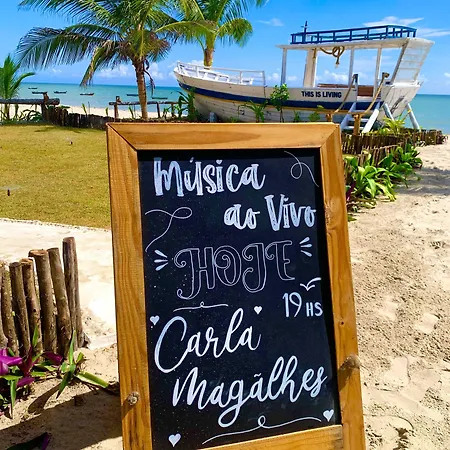 THIS IS LIVING
Música
ao Vivo
HOJE
19HS
Carla
Magãlhes